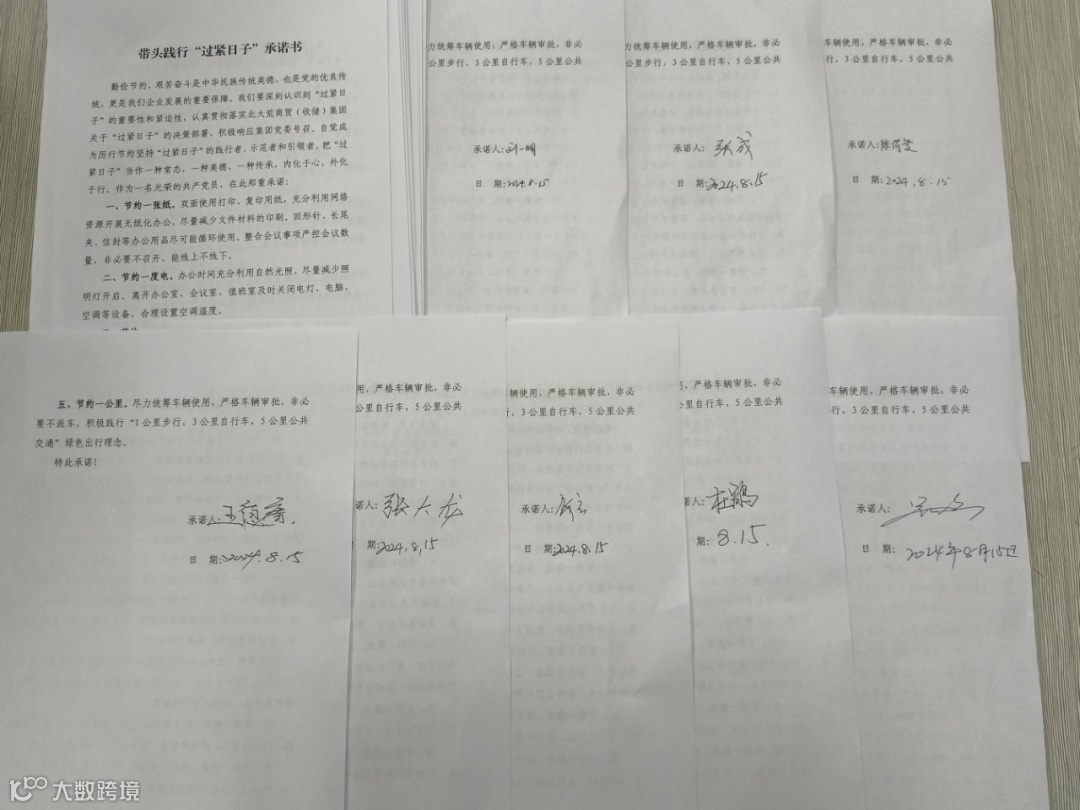 带头践行“过紧日子”承诺书
勤俭节约、艰苦奋斗是中华民族传统美德，也是党的优良传
统，更是我们企业发展的重要保障。我们要深刻认识到“过紧日
子”的重要性和紧迫性，认真贯彻落实北大荒商贸（收储）集团
关于“过紧日子”的决策部署，积极响应集团党委号召，自觉成
为厉行节约坚持“过紧日子”的践行者、示范者和引领者，把“过
紧日子”当作一种常态、一种美德、一种传承，内化于心、外化
于行。作为一名光荣的共产党员，在此郑重承诺：
一、节约一张纸。双面使用打印、复印用纸，充分利用网络
资源开展无纸化办公，尽量减少文件材料的印刷。回形针、长尾
夹、信封等办公用品尽可能循环使用。整合会议事项严控会议数
量，非必要不召开，能线上不线下。
二、节约一度电。办公时间充分利用自然光照，尽量减少照
明灯开启。离开办公室、会议室、值班室及时关闭电灯、电脑、
空调等设备，合理设置空调温度。
力统筹车辆使用，严格车辆审批，非必
公里步行，3公里自行车，5公里公共
承诺人：刘一明
日 期：2024.8.15
力统筹车辆使用，严格车辆审批，非必
公里步行，3公里自行车，5公里公共
承诺人：张成
日 期：2024.8.15
车辆使用，严格车辆审批，非必
行，3公里自行车，5公里公共
承诺人：陈
日 期：2024.8.15
五、节约一公里。尽力统筹车辆使用，严格车辆审批，非必
要不派车，积极践行“1公里步行，3公里自行车，5公里公共
交通”绿色出行理念。
特此承诺！
承诺人：王
日 期：2024.8.15
用，严格车辆审批，非必
公里自行车，5公里公共
诺人：张大龙
期：2024.8.15
辆使用，严格车辆审批，非必
行，3公里自行车，5公里公共
承诺人：
日 期：2024.8.15
，严格车辆审批，非必
公里自行车，5公里公共
诺人：杜鹃
期：8.15.
车辆使用，严格车辆审批，非必
行，3公里自行车，5公里公共
承诺人：
日 期：2024年8月15日
大数跨境